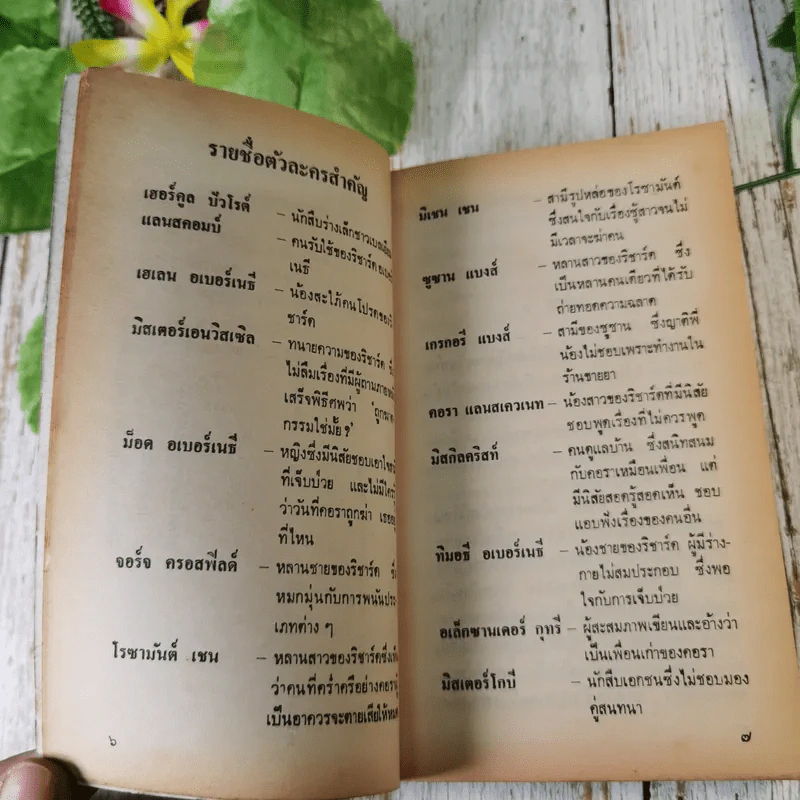 รายชื่อตัวละครสำคัญ
เฮอร์คูล ปัวโรต์ – นักสืบร่างเล็กชาวเบลเยียม
แลนสคอมบ์ – คนรับใช้ของริชาร์ด
เนธี
เฮเลน อเบอร์เนธี – น้องสะใภ้คนโปรดของ
ชาร์ด
มิสเตอร์เอนวิสเซิล – ทนายความของริชาร์ด
ไม่ลืมเรื่องที่มีผู้ถามภาย
เสร็จพิธีศพว่า 'ถูก
กรรมใช่มั้ย?'
ม็อด อเบอร์เนธี – หญิงซึ่งมีนิสัยชอบเอาใจ
ที่เจ็บป่วย และไม่มีใคร
ว่าวันที่คอราถูกฆ่า เธอ
ที่ไหน
จอร์จ ครอสฟิลด์ – หลานชายของริชาร์ด
หมกมุ่นกับการพนันประ
เภทต่าง ๆ
โรซามันด์ เชน – หลานสาวของริชาร์ดซึ่ง
ว่าคนที่คร่ำครึอย่างคอรา
เป็นอาควรจะตายเสียให้หมด
๖
มิเชน เชน – สามีรูปหล่อของโรซามันด์
ซึ่งสนใจกับเรื่องชู้สาวจนไม่
มีเวลาจะฆ่าคน
ซูซาน แบงส์ – หลานสาวของริชาร์ด ซึ่ง
เป็นหลานคนเดียวที่ได้รับ
ถ่ายทอดความฉลาด
เกรกอรี แบงส์ – สามีของซูซาน ซึ่งญาติพี่
น้องไม่ชอบเพราะทำงานใน
ร้านขายยา
คอรา แลนสเควเนท – น้องสาวของริชาร์ดที่มีนิสัย
ชอบพูดเรื่องที่ไม่ควรพูด
มิสกิลคริสท์ – คนดูแลบ้าน ซึ่งสนิทสนม
กับคอราเหมือนเพื่อน แต่
มีนิสัยสอดรู้สอดเห็น ชอบ
แอบฟังเรื่องของคนอื่น
ทิมอธี อเบอร์เนธี – น้องชายของริชาร์ด ผู้มีร่าง-
กายไม่สมประกอบ ซึ่งพอ
ใจกับการเจ็บป่วย
อเล็กซานเดอร์ กุทรี – ผู้สะสมภาพเขียนและอ้างว่า
เป็นเพื่อนเก่าของคอรา
มิสเตอร์โกบี – นักสืบเอกชนซึ่งไม่ชอบมอง
คู่สนทนา
๗